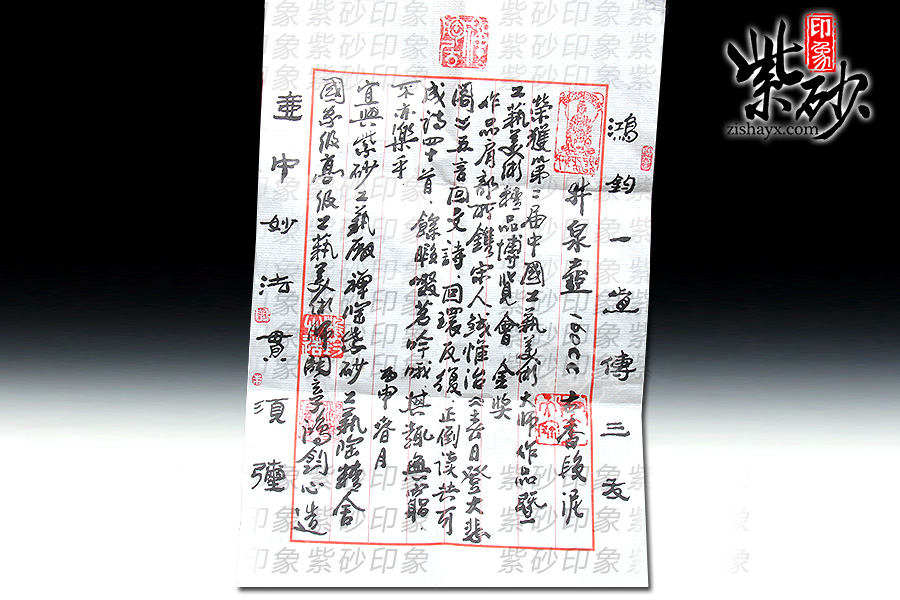 印象
紫砂
zishayx.com
鴻鈞一傳三友
井泉壺 1600cc 香段泥
榮獲第二届中國工藝美術大師作品暨
工藝美術精品博覽會金獎
作品肩部所鐫宋人錢惟治《春日登大悲
閣》五言回文詩，回環反復，正倒讀共可
成詩四十首，餘暇啜茗吟哦，其趣無窮，
不亦樂乎
丙申春月
宜興紫砂工藝廠禪陶紫砂工藝陶精舍
國家級高級工藝美術師鴻鈞心造
壺中妙法貫須彌
紫砂印象